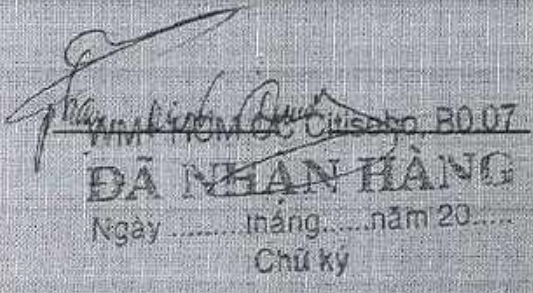 WM+ HCM CC Citisoho, B0.07
ĐÃ NHẬN HÀNG
Ngày .........tháng......năm 20.....
Chữ ký